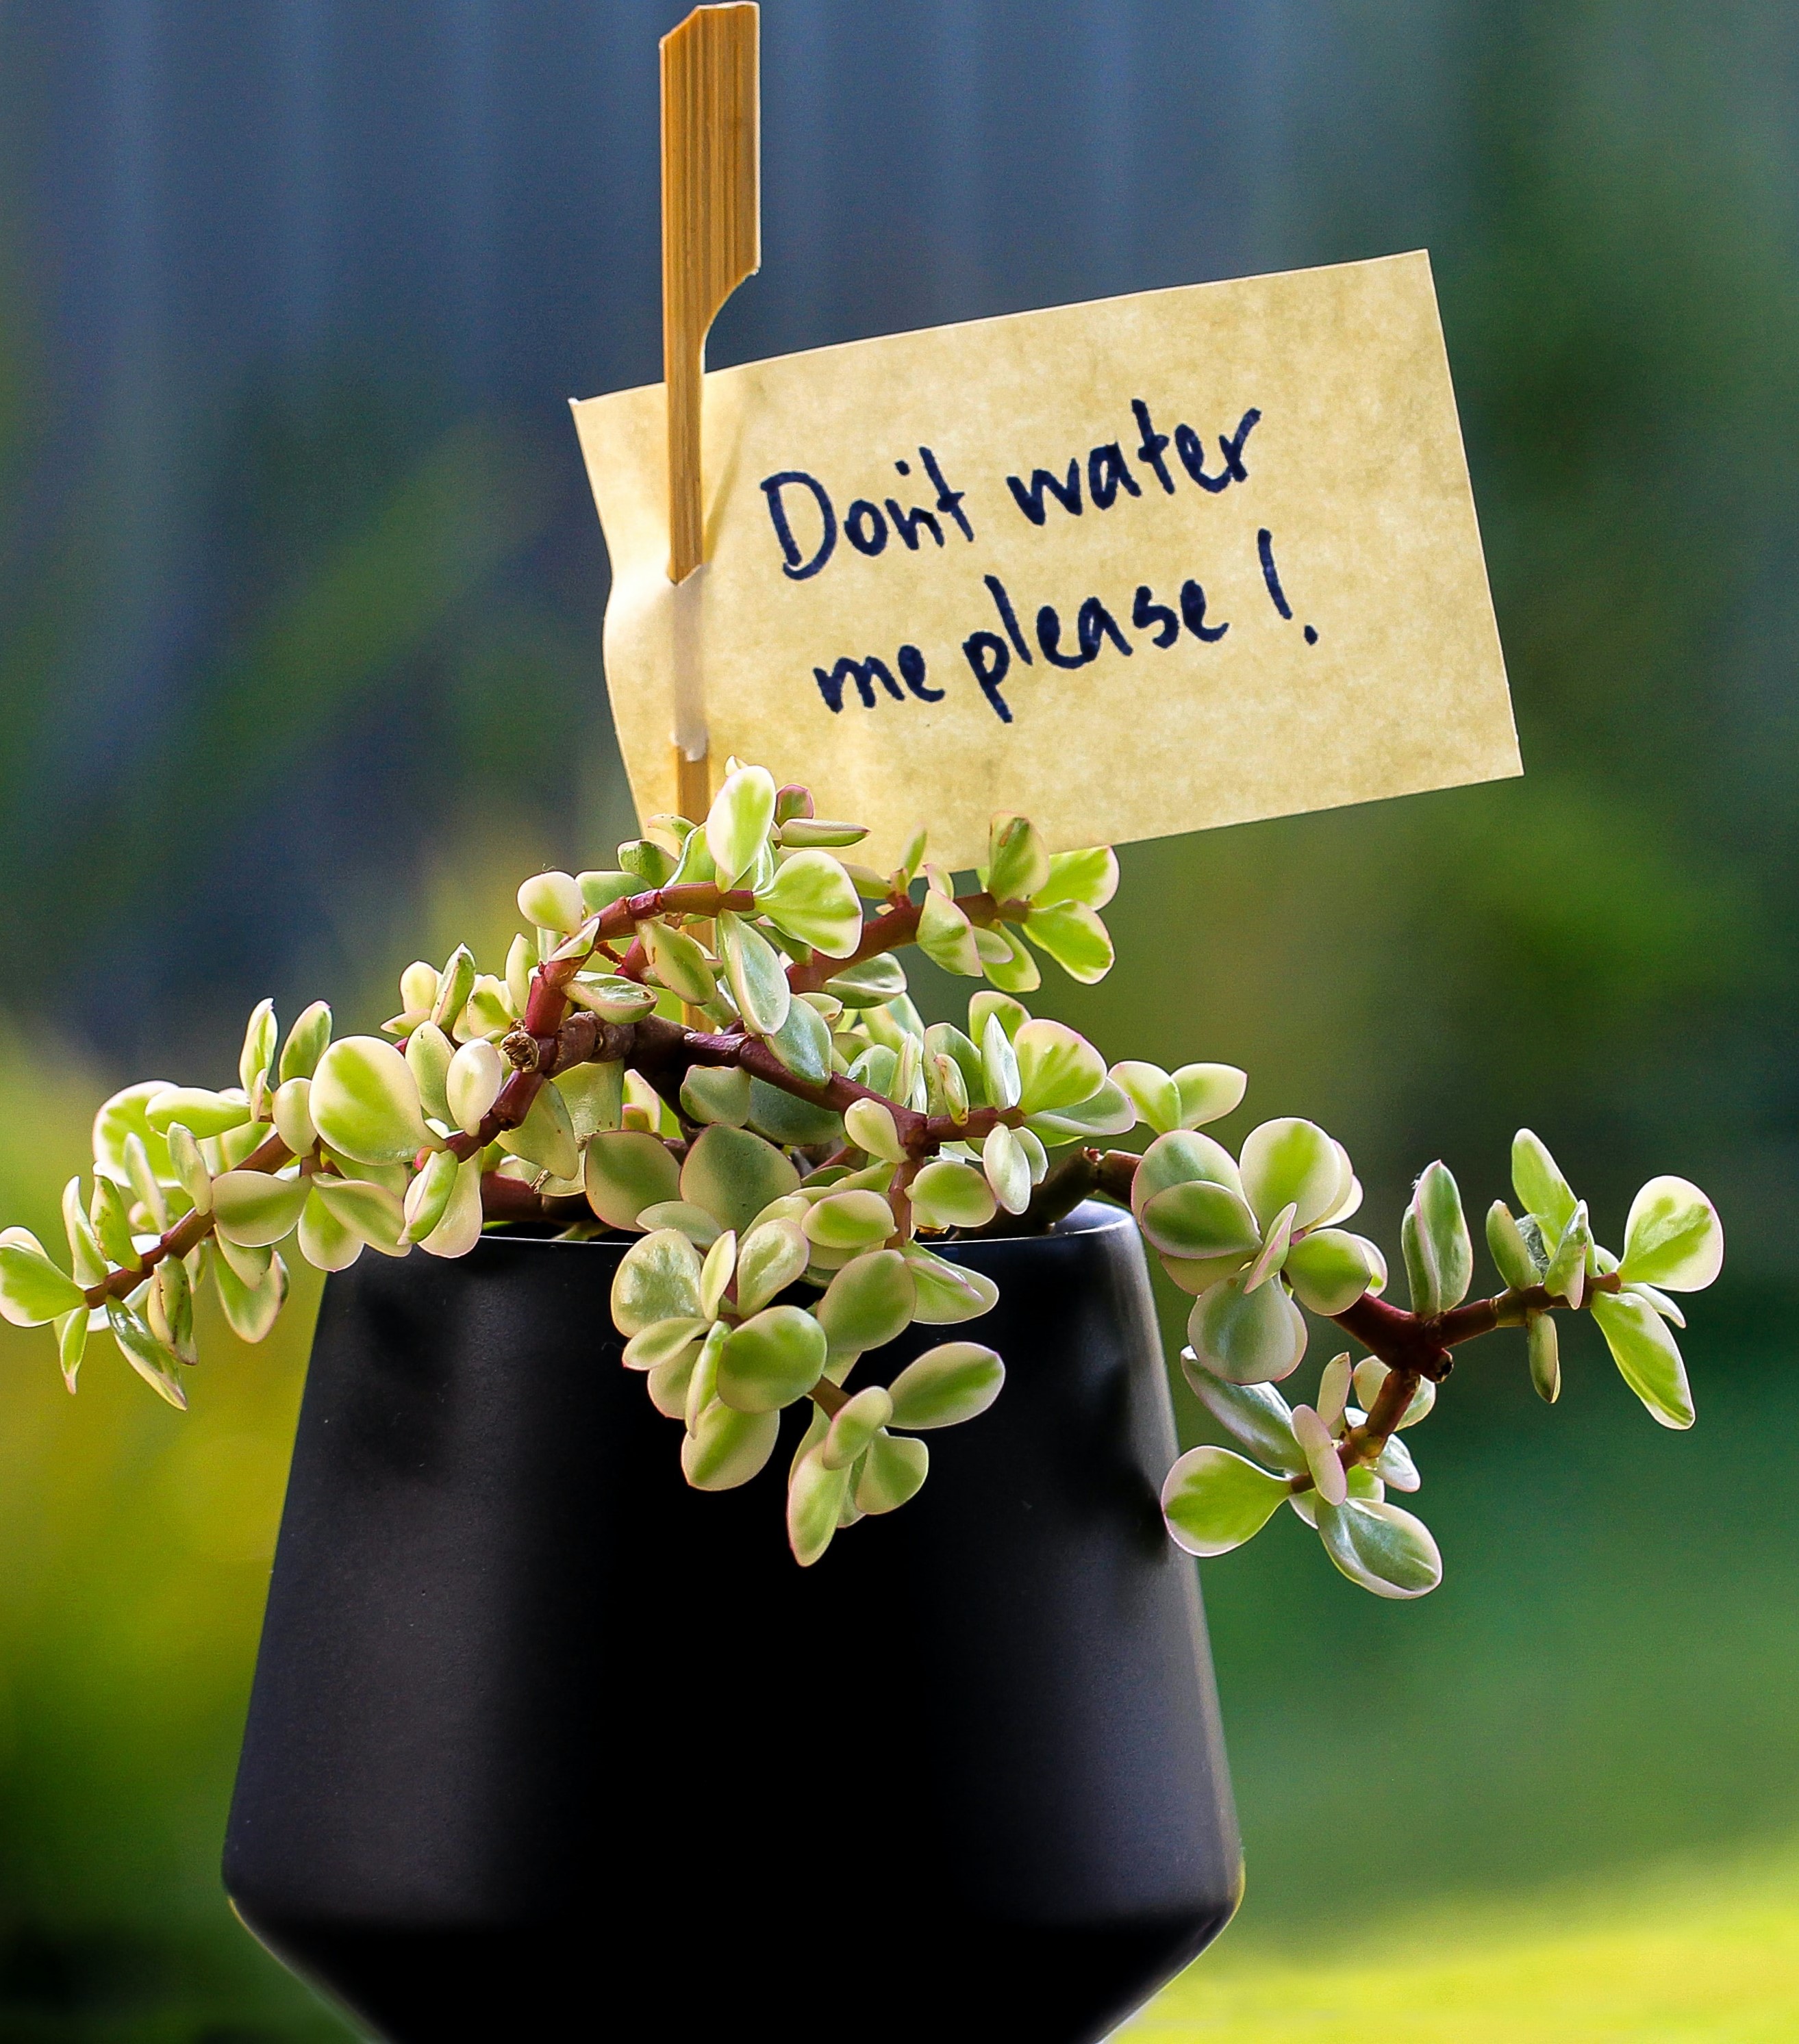 Don't water
me please !